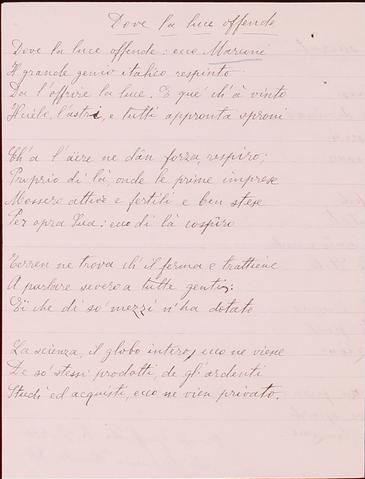 Dove la luce offende
Dove la luce offende: ecco Marconi
Il grande genio italico respinto
Da l'offrire la luce. E que' ch'à vinto
l'astri, e tutti appronta sproni
Ch'a l'äere ne dân forza, respiro;
Proprio di là, onde le prime imprese
Mossero attive e fertili e ben stese
Per opra Sua: ecco di là cospiro
Terren ne trova ch'il ferma e trattiene
A parlare severo a tutte genti;
Ei che di so' mezzi n'ha dotato
La scienza, il globo intero, ecco ne viene
De so' stessi prodotti, de gl'ardenti
Studi ed acquisti, ecco ne vien privato.